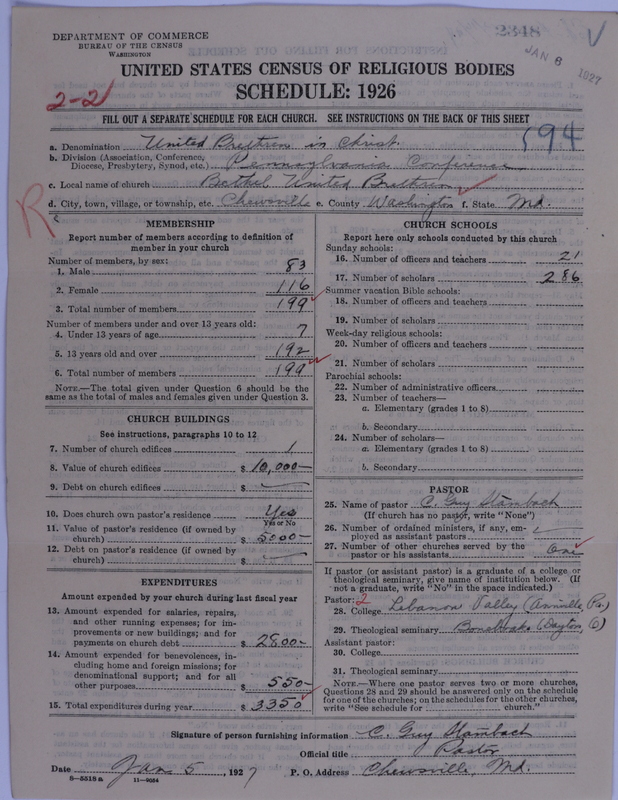 2348
DEPARTMENT OF COMMERCE
BUREAU OF THE CENSUS
WASHINGTON
JAN 6 1927
UNITED STATES CENSUS OF RELIGIOUS BODIES
SCHEDULE: 1926
2-2
FILL OUT A SEPARATE SCHEDULE FOR EACH CHURCH. SEE INSTRUCTIONS ON THE BACK OF THIS SHEET
594
a. Denomination United Brethren in Christ
b. Division (Association, Conference, Diocese, Presbytery, Synod, etc.) Pennsylvania Conference
c. Local name of church Bethel United Brethren
d. City, town, village, or township, etc. Chewsville e. County Washington f. State Md.
R
MEMBERSHIP
Report number of members according to definition of member in your church
Number of members, by sex:
1. Male 83
2. Female 116
3. Total number of members 199
Number of members under and over 13 years old:
4. Under 13 years of age 7
5. 13 years old and over 192
6. Total number of members 199
NOTE.—The total given under Question 6 should be the same as the total of males and females given under Question 3.
CHURCH BUILDINGS
See instructions, paragraphs 10 to 12
7. Number of church edifices 1
8. Value of church edifices $ 10,000—
9. Debt on church edifices $
10. Does church own pastor's residence Yes
Yes or No
11. Value of pastor's residence (if owned by church) $ 5000—
12. Debt on pastor's residence (if owned by church) $
EXPENDITURES
Amount expended by your church during last fiscal year
13. Amount expended for salaries, repairs, and other running expenses; for improvements or new buildings; and for payments on church debt $ 2800—
14. Amount expended for benevolences, including home and foreign missions; for denominational support; and for all other purposes $ 550—
15. Total expenditures during year $ 3350
CHURCH SCHOOLS
Report here only schools conducted by this church
Sunday schools:
16. Number of officers and teachers 21
17. Number of scholars 286
Summer vacation Bible schools:
18. Number of officers and teachers
19. Number of scholars
Week-day religious schools:
20. Number of officers and teachers
21. Number of scholars
Parochial schools:
22. Number of administrative officers
23. Number of teachers—
a. Elementary (grades 1 to 8)
b. Secondary
24. Number of scholars—
a. Elementary (grades 1 to 8)
b. Secondary
PASTOR
25. Name of pastor C. Guy Stambach
(If church has no pastor, write "None")
26. Number of ordained ministers, if any, employed as assistant pastors
27. Number of other churches served by the pastor or his assistants One
If pastor (or assistant pastor) is a graduate of a college or theological seminary, give name of institution below. (If not a graduate, write "No" in the space indicated.)
Pastor: 2
28. College Lebanon Valley (Annville, Pa.)
29. Theological seminary Bonebrake (Dayton, O)
Assistant pastor:
30. College
31. Theological seminary
NOTE.—Where one pastor serves two or more churches, Questions 28 and 29 should be answered only on the schedule for one of the churches; on the schedules for the other churches, write "See schedule for church."
Signature of person furnishing information C. Guy Stambach
Official title Pastor
Date Jan 5, 1927 P. O. Address Chewsville, Md.
8-5518a 11-9084